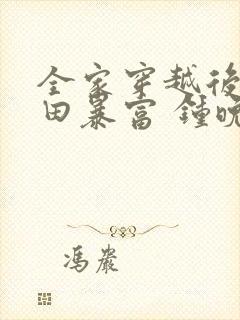 全家穿越後
田暴富 鍾晚
馮嚴